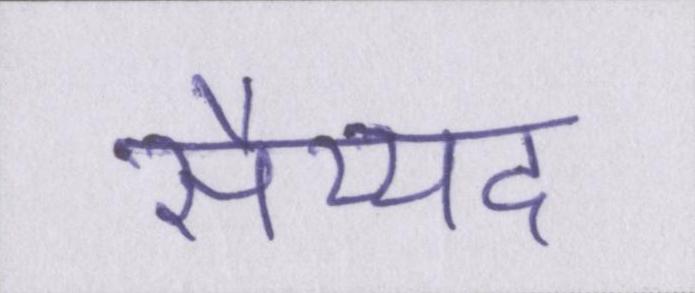 सैय्यद